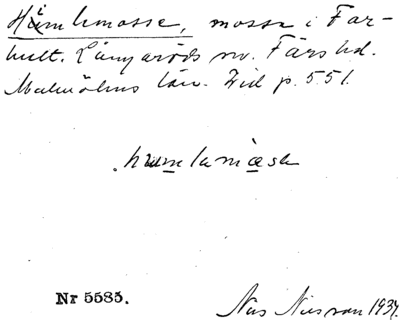 Humlemosse, mosse i Far-
hult. Långaröds sn. Färs hd.
Malmöhus län. Zid p. 551.
humlamåsa
Nr 5585.
Nils Nilsson 1934.